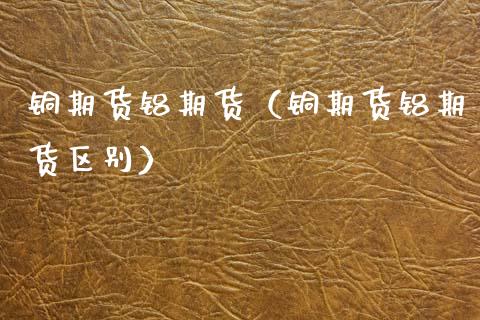 铜期货铝期货（铜期货铝期
货区别）